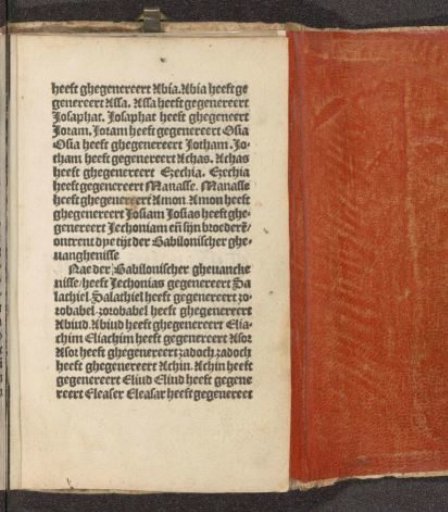 heeft ghegenereert Abia. Abia heeft ge
genereert Assa. Assa heeft gegenereert
Josaphat. Josaphat heeft ghegeneert
Joram. Joram heeft gegenereert Osia
Osia heeft ghegenereert Jotham. Jo-
tham heeft gegenereert Achas. Achas
heeft ghegenereert Ezechia. Ezechia
heeft gegenereert Manasse. Manasse
heeft ghegenereert Amon. Amon heeft
ghegenereert Josiam Josias heeft ghe-
genereert Jechoniam eñ sijn broederē/
ontrent dye tijt der Babilonischer ghe-
uanghenisse
Nae der Babilonischer gheuancke
nisse/heeft Jechonias gegenereert Sa
lathiel. Salathiel heeft gegenereert zo-
robabel. zorobabel heeft ghegenereert
Abiud. Abiud heeft ghegenereert Elia-
chim Eliachim heeft gegenereert Asor
Asor heeft ghegenereert zadoch. zadoch
heeft ghegenereert Achin. Achin heeft
gegenereert Eliud Eliud heeft gegene
reert Eleasar Eleasar heeft gegenereet